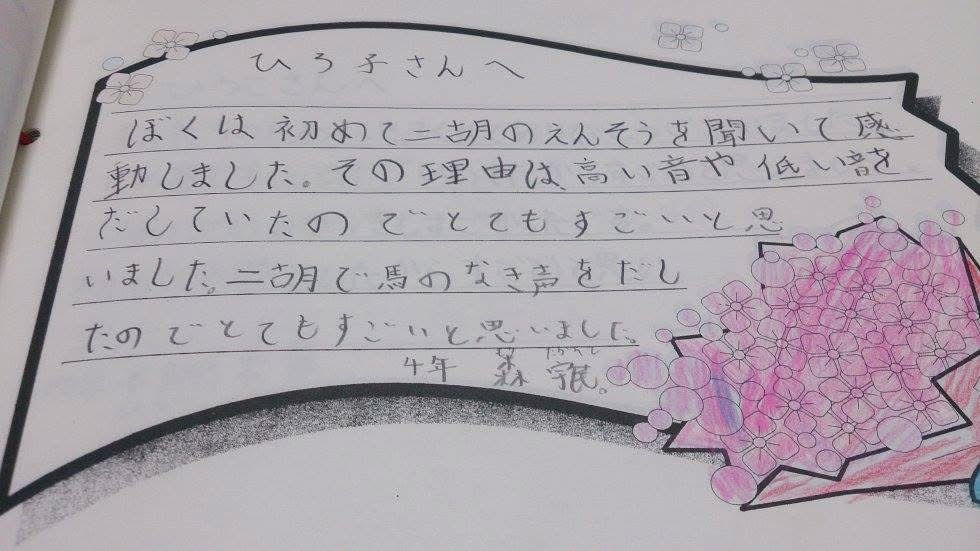 ひろ子さんへ
ぼくは初めて二胡のえんそうを聞いて感
動しました。その理由は、高い音や低い音を
だしていたのでとてもすごいと思
いました。二胡で馬のなき声をだし
たのでとてもすごいと思いました。
4年 森